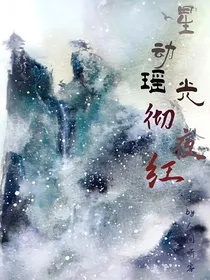 星动瑶光彻夜红